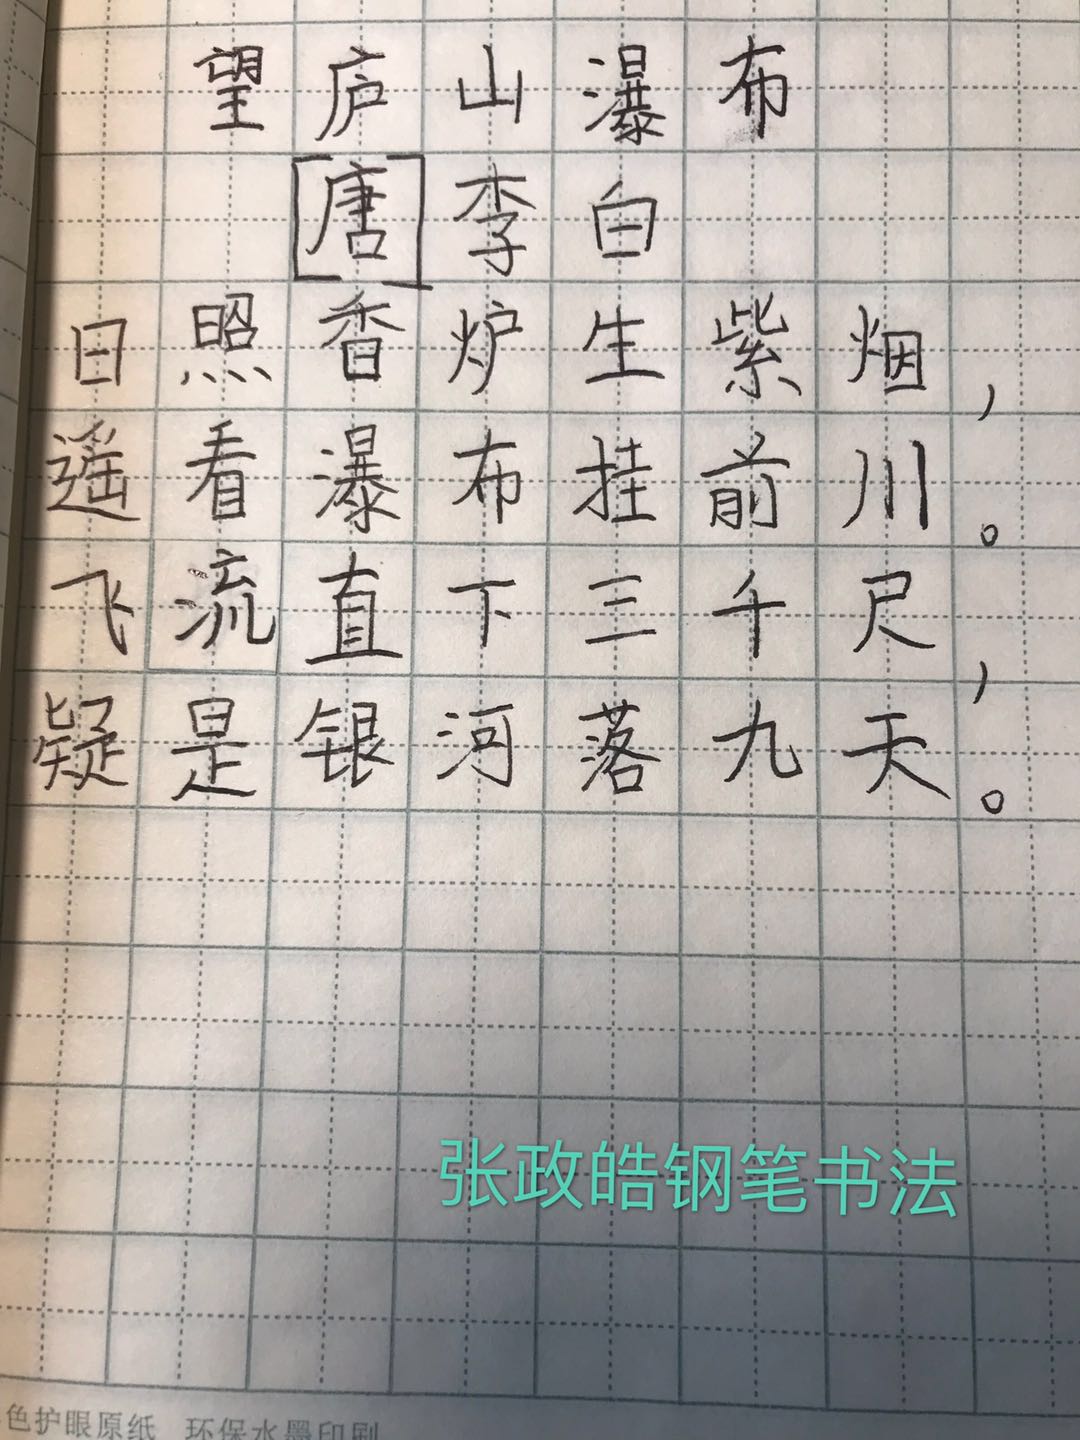 望庐山瀑布
[唐]李白
日照香炉生紫烟，
遥看瀑布挂前川。
飞流直下三千尺，
疑是银河落九天。
张政皓钢笔书法
色护眼原纸 环保水墨印刷